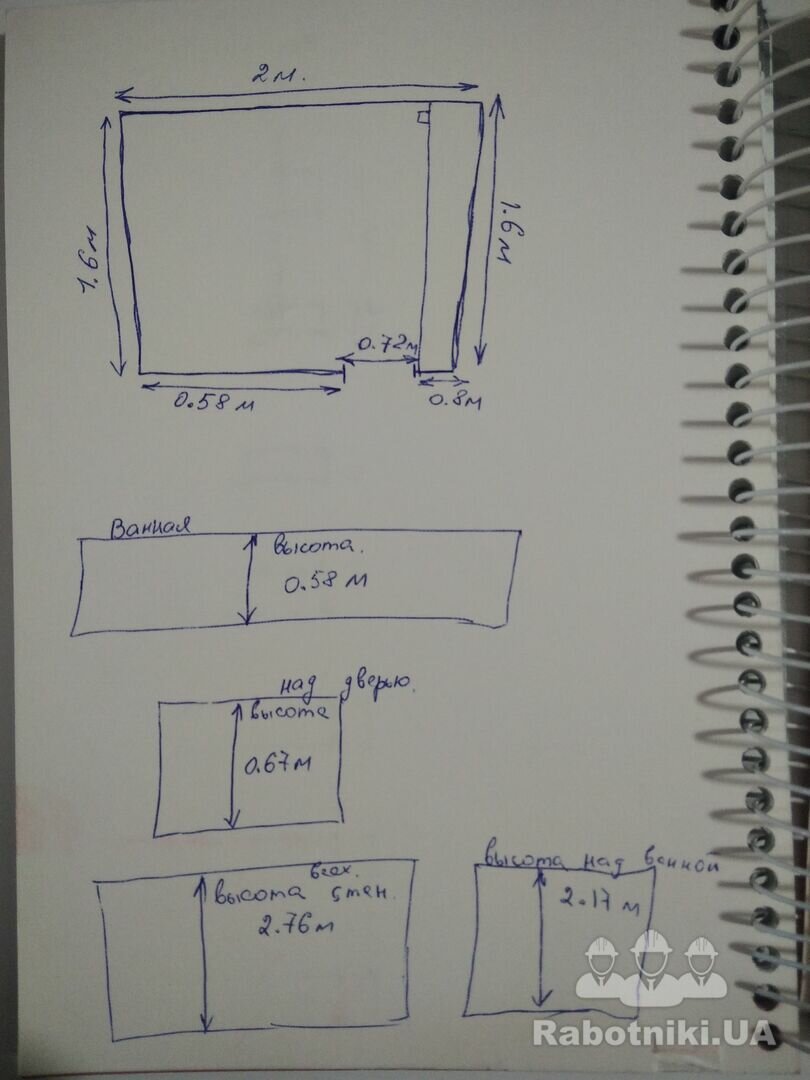 2 м.
1.6 м
1.6 м
0.72м
0.58 м
0.8м
Ванная
высота.
0.58 м
над дверью.
высота
0.67м
всех.
высота стен.
2.76м
высота над ванной
2.17 м
Rabotniki.UA